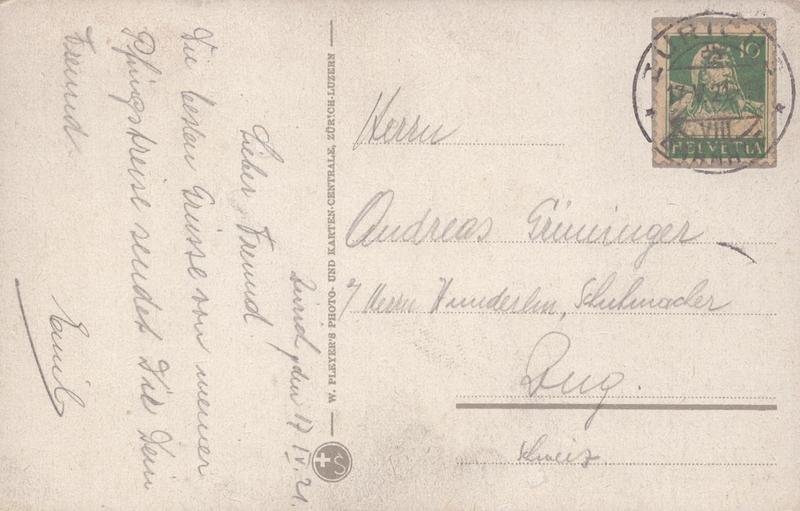 Zürich, den 17 IV. 21.
Lieber Freund
Die besten Grüsse von meiner
Pfingstreise sendet Dir Dein
Freund
Emil
W. PLEYER'S PHOTO- UND KARTEN-CENTRALE, ZÜRICH-LUZERN
Herrn
Andreas Grüninger
Herrn Wunderlin, Schuhmacher
Zug.
Schweiz.
10
HELVETIA
ZÜRICH
VIII